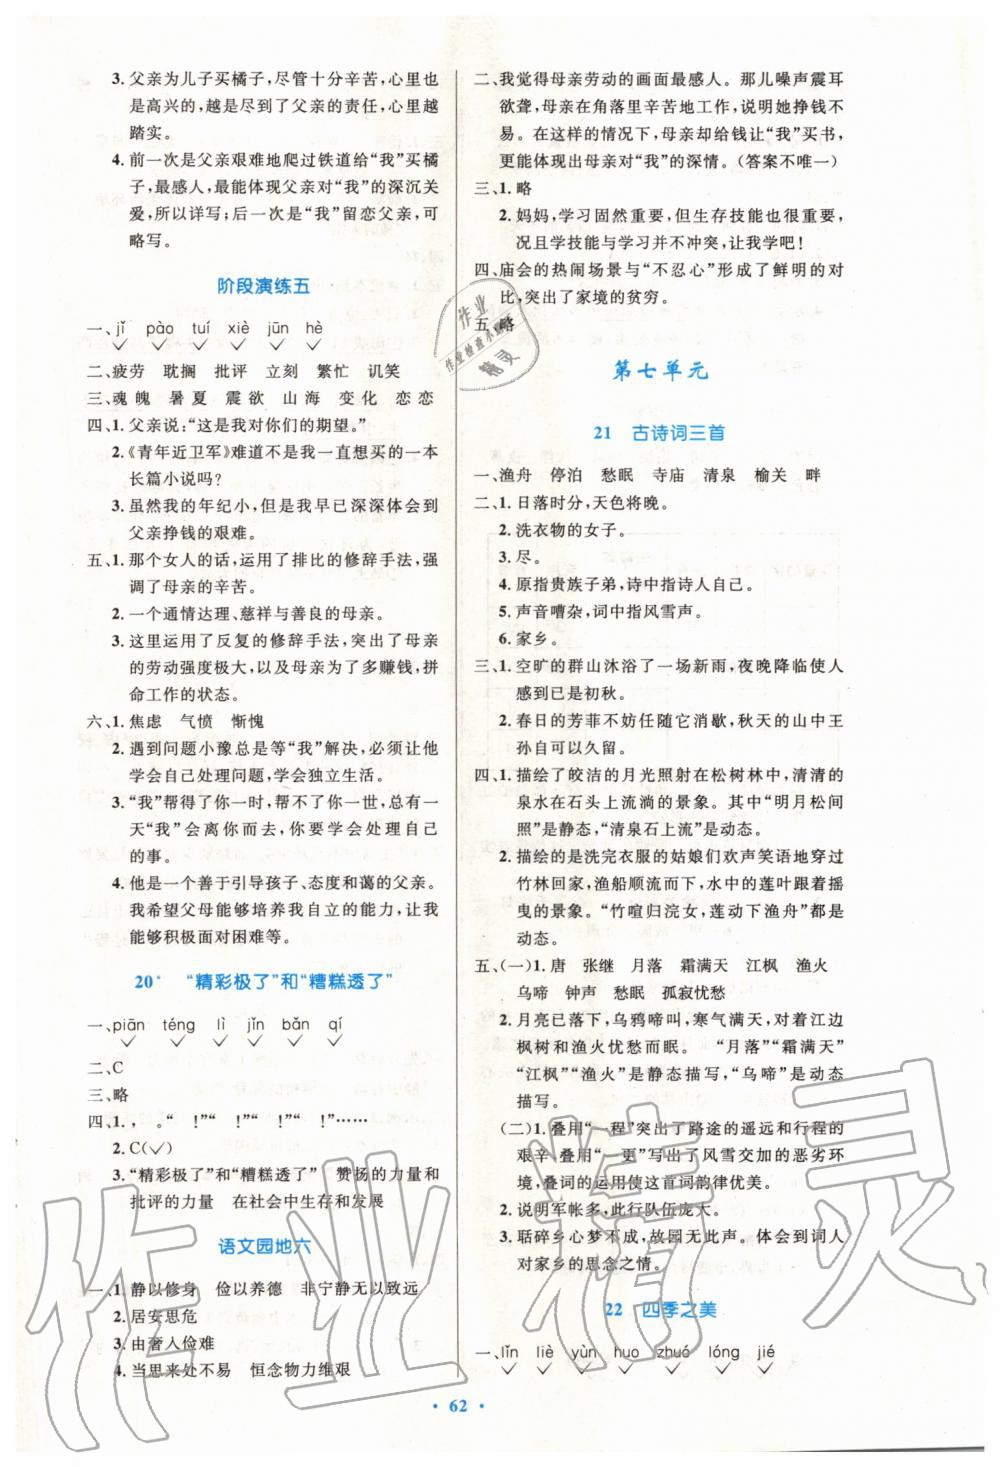 3. 父亲为儿子买橘子,尽管十分辛苦,心里也
是高兴的,越是尽到了父亲的责任,心里越
踏实。
4. 前一次是父亲艰难地爬过铁道给“我”买橘
子,最感人,最能体现父亲对“我”的深沉关
爱,所以详写;后一次是“我”留恋父亲,可
略写。
阶段演练五
一、jǐ pào tuí xiè jūn hè
二、疲劳 耽搁 批评 立刻 繁忙 讥笑
三、魂 魄 暑 夏 震 欲 山 海 变 化 恋 恋
四、1. 父亲说:“这是我对你们的期望。”
2.《青年近卫军》难道不是我一直想买的一本
长篇小说吗?
3. 虽然我的年纪小,但是我早已深深体会到
父亲挣钱的艰难。
五、1. 那个女人的话,运用了排比的修辞手法,强
调了母亲的辛苦。
2. 一个通情达理、慈祥与善良的母亲。
3. 这里运用了反复的修辞手法,突出了母亲
的劳动强度极大,以及母亲为了多赚钱,拼
命工作的状态。
六、1. 焦虑 气愤 惭愧
2. 遇到问题小豫总是等“我”解决,必须让他
学会自己处理问题,学会独立生活。
3. “我”帮得了你一时,帮不了你一世,总有一
天“我”会离你而去,你要学会处理自己
的事。
4. 他是一个善于引导孩子、态度和蔼的父亲。
我希望父母能够培养我自立的能力,让我
能够积极面对困难等。
20* “精彩极了”和“糟糕透了”
一、piān téng lì jǐn bǎn qí
二、C
三、略
四、1. , 。“ !”“ !”“ !”……
2. C(✓)
3. “精彩极了”和“糟糕透了” 赞扬的力量和
批评的力量 在社会中生存和发展
语文园地六
一、1. 静以修身 俭以养德 非宁静无以致远
2. 居安思危
3. 由奢入俭难
4. 当思来处不易 恒念物力维艰
二、我觉得母亲劳动的画面最感人。那儿噪声震耳
欲聋,母亲在角落里辛苦地工作,说明她挣钱不
易。在这样的情况下,母亲却给钱让“我”买书,
更能体现出母亲对“我”的深情。(答案不唯一)
三、1. 略
2. 妈妈,学习固然重要,但生存技能也很重要,
况且学技能与学习并不冲突,让我学吧!
四、庙会的热闹场景与“不忍心”形成了鲜明的对
比,突出了家境的贫穷。
五、略
第七单元
21 古诗词三首
一、渔舟 停泊 愁眠 寺庙 清泉 榆关 畔
二、1. 日落时分,天色将晚。
2. 洗衣物的女子。
3. 尽。
4. 原指贵族子弟,诗中指诗人自己。
5. 声音嘈杂,词中指风雪声。
6. 家乡。
三、1. 空旷的群山沐浴了一场新雨,夜晚降临使人
感到已是初秋。
2. 春日的芳菲不妨任随它消歇,秋天的山中王
孙自可以久留。
四、1. 描绘了皎洁的月光照射在松树林中,清清的
泉水在石头上流淌的景象。其中“明月松间
照”是静态,“清泉石上流”是动态。
2. 描绘的是洗完衣服的姑娘们欢声笑语地穿过
竹林回家,渔船顺流而下,水中的莲叶跟着摇
曳的景象。“竹喧归浣女,莲动下渔舟”都是
动态。
五、(一)1. 唐 张继 月落 霜满天 江枫 渔火
乌啼 钟声 愁眠 孤寂忧愁
2. 月亮已落下,乌鸦啼叫,寒气满天,对着江边
枫树和渔火忧愁而眠。 “月落”“霜满天”
“江枫”“渔火”是静态描写,“乌啼”是动态
描写。
(二)1. 叠用“一程”突出了路途的遥远和行程的
艰辛 叠用“一更”写出了风雪交加的恶劣环
境,叠词的运用使这首词韵律优美。
2. 说明军帐多,此行队伍庞大。
3. 聒碎乡心梦不成,故园无此声。体会到词人
对家乡的思念之情。
22 四季之美
一、lǐn liè yùn huo zhuó lóng jié
• 62 •
作业
作业检查小助手
精灵
作业精灵